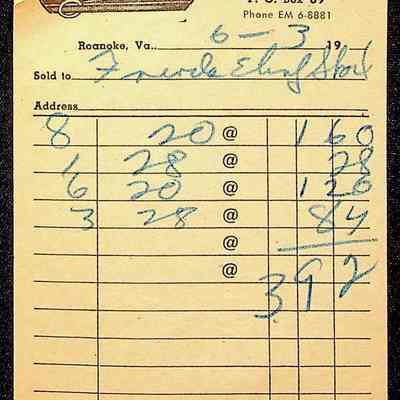 P. O. Box 69
Phone EM 6-8881
Roanoke, Va. 6 - 3 19
Sold to
Address
8 20 @ 1 60
1 28 28
6 20 @ 1 20
3 28 @ 84
@
@ 3 9 2